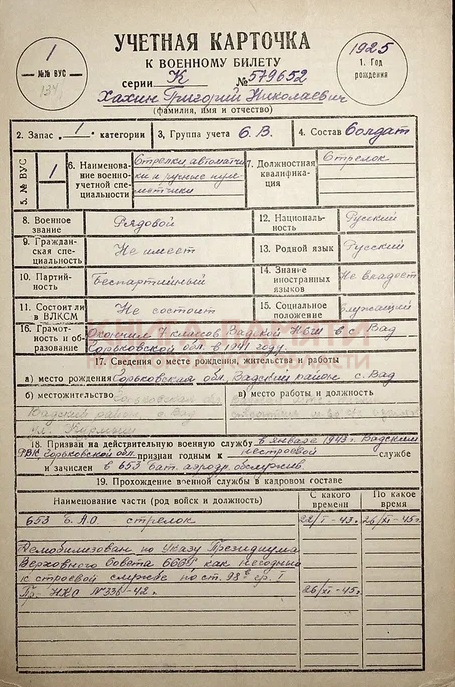 1
№№ ВУС
134
УЧЕТНАЯ КАРТОЧКА
К ВОЕННОМУ БИЛЕТУ
серии К № 579652
Хахин Григорий Николаевич
(фамилия, имя и отчество)
1925
1. Год рождения
2. Запас 1 категории
3. Группа учета С.В.
4. Состав Солдат
5. № ВУС 1
6. Наименование военно-учетной специальности
Стрелки, автоматчики и ручные пулеметчики
7. Должностная квалификация
Стрелок
8. Военное звание
Рядовой
12. Национальность
Русский
9. Гражданская специальность
Не имеет
13. Родной язык
Русский
10. Партийность
Беспартийный
14. Знание иностранных языков
Не владеет
11. Состоит ли в ВЛКСМ
Не состоит
15. Социальное положение
Служащий
16. Грамотность и образование
Окончил 7 классов Вадской НСШ в с. Вад
Горьковской обл. в 1941 году.
17. Сведения о месте рождения, жительства и работы
а) место рождения Горьковская обл. Вадский район с. Вад
б) местожительство Горьковская обл
Вадский район, с. Вад
в) место работы и должность
18. Призван на действительную военную службу в январе 1943 г. Вадским
РВК Горьковской обл. признан годным к нестроевой службе
и зачислен в 653 бат. аэродр. обслужив.
19. Прохождение военной службы в кадровом составе
Наименование части (род войск и должность)
С какого времени
По какое время
653 Б.А.О стрелок
22/I-43г.
26/XI-45г.
Демобилизован по указу Президиума
Верховного Совета СССР как негодный
к строевой службе по ст. 98 гр. I
Пр. НКО № 336-42г.
26/XI-45г.